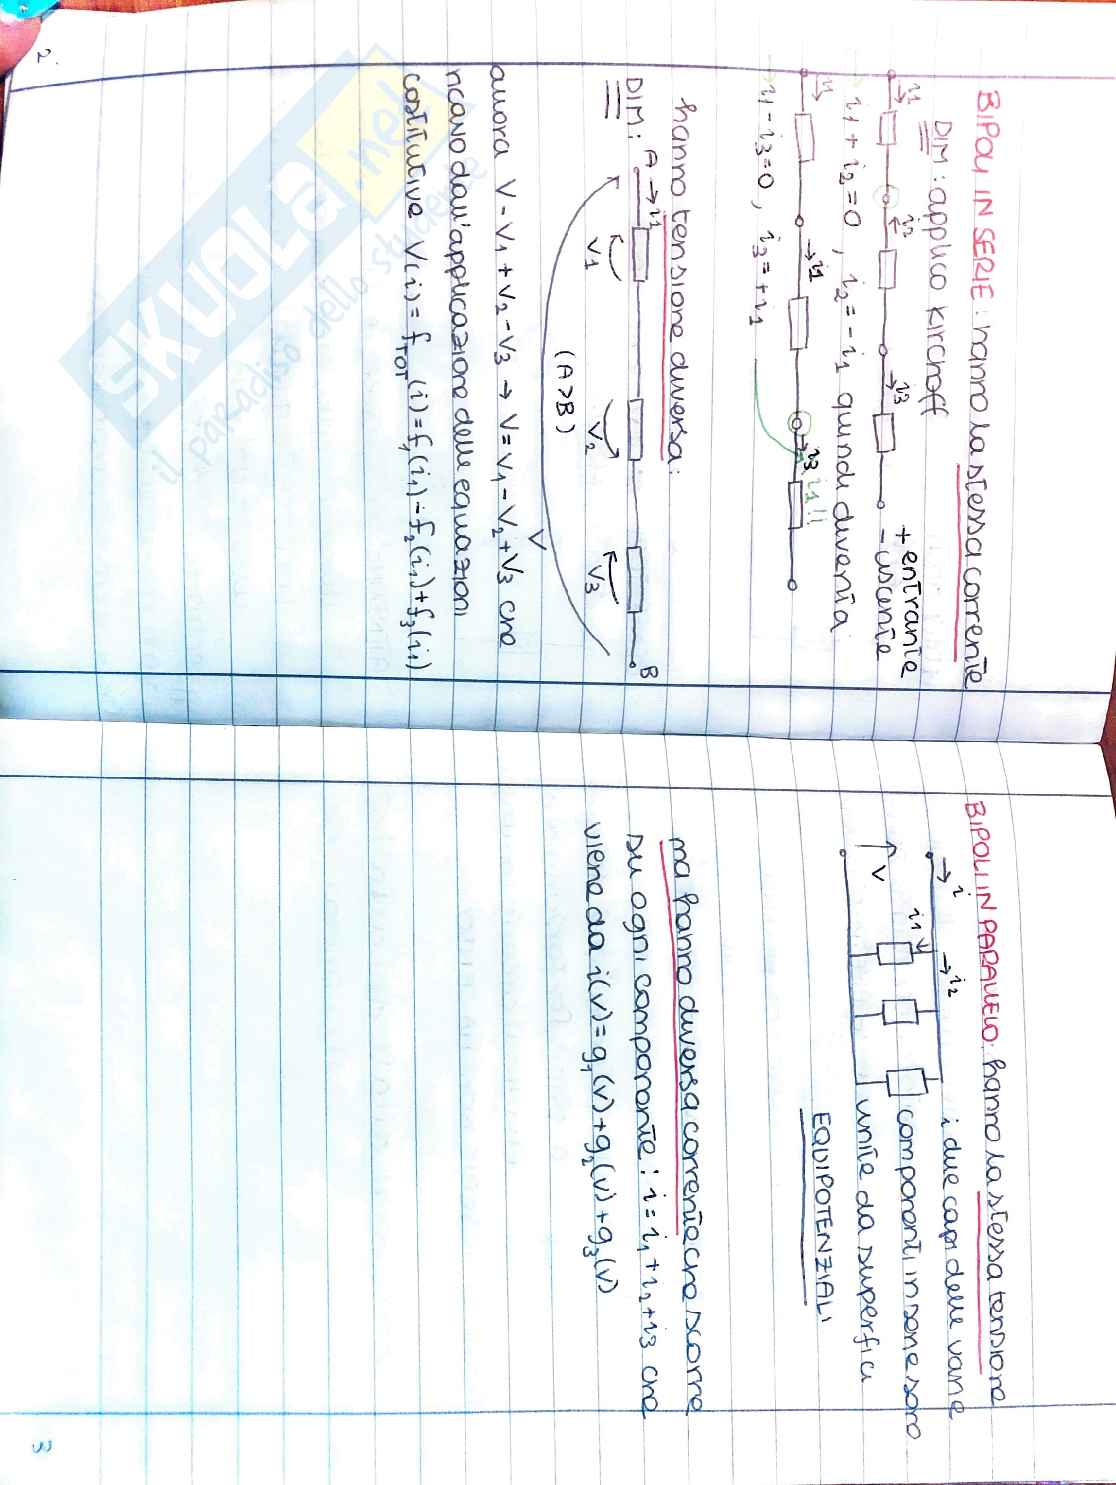 2.
BIPOLI IN SERIE: hanno la stessa corrente
DIM: applico Kirchoff
+ entrante
- uscente
i1 i2 i3
i1 + i2 = 0 , i2 = - i1 quindi diventa
i1 i1 i3 i1!!
i1 - i3 = 0 , i3 = + i1
hanno tensione diversa:
DIM: A i1 B
V1 V2 V3
(A>B)
V
allora V - V1 + V2 - V3 → V = V1 - V2 + V3 che
ricavo dall'applicazione delle equazioni
costitutive V(i) = fTOT (i) = f1(i1) - f2(i1) + f3(i1)
SKUOLA.net
il paradiso dello studente
BIPOLI IN PARALLELO: hanno la stessa tensione
i i2
i1
V
i due capi delle varie
componenti in serie sono
unite da superfici
EQUIPOTENZIALI
ma hanno diversa corrente che scorre
su ogni componente: i = i1 + i2 + i3 che
viene da i(v) = g1(v) + g2(v) + g3(v)
3